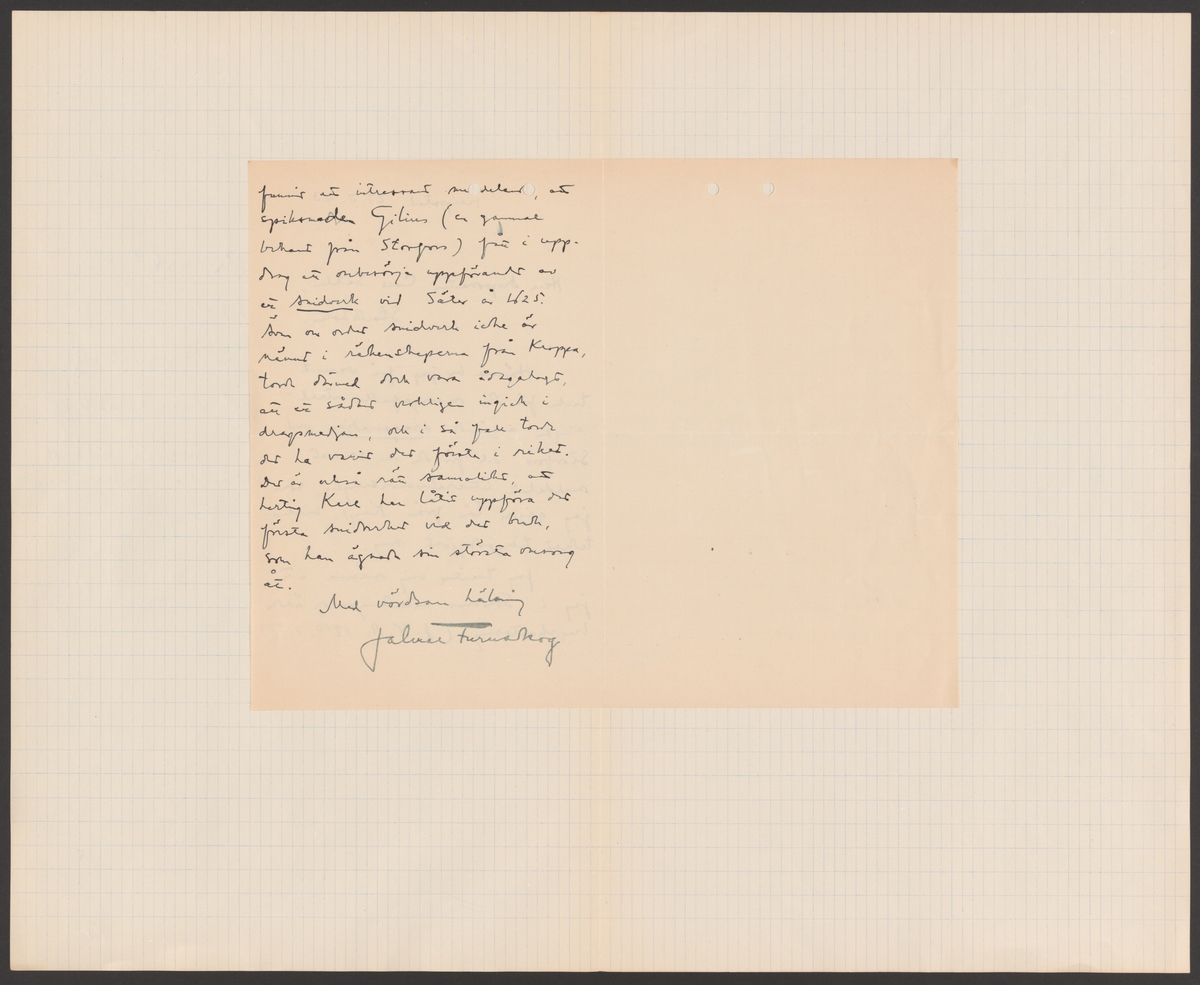 funnit ett intressant meddelande, att
spiksmeden Gilius (en gammal
bekant från Storfors) fått i upp-
drag att ombesörja uppförandet av
ett snidverk vid Säter år 1625.
Även om ordet snidverk icke är
nämnt i räkenskaperna från Kroppa,
torde därmed dock vara ådagalagt,
att ett sådant verkligen ingick i
dragsmedjan, och i så fall torde
det ha varit det första i riket.
Det är också rätt sannolikt, att
hertig Karl har låtit uppföra det
första snidverket vid det bruk,
som han ägnade sin största omsorg
åt.
Med vördsam hälsning
Jalmar Furuskog